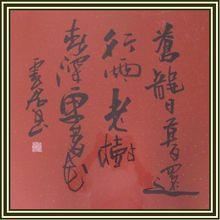 蒼龍日暮還
行雨老樹
春深更著花